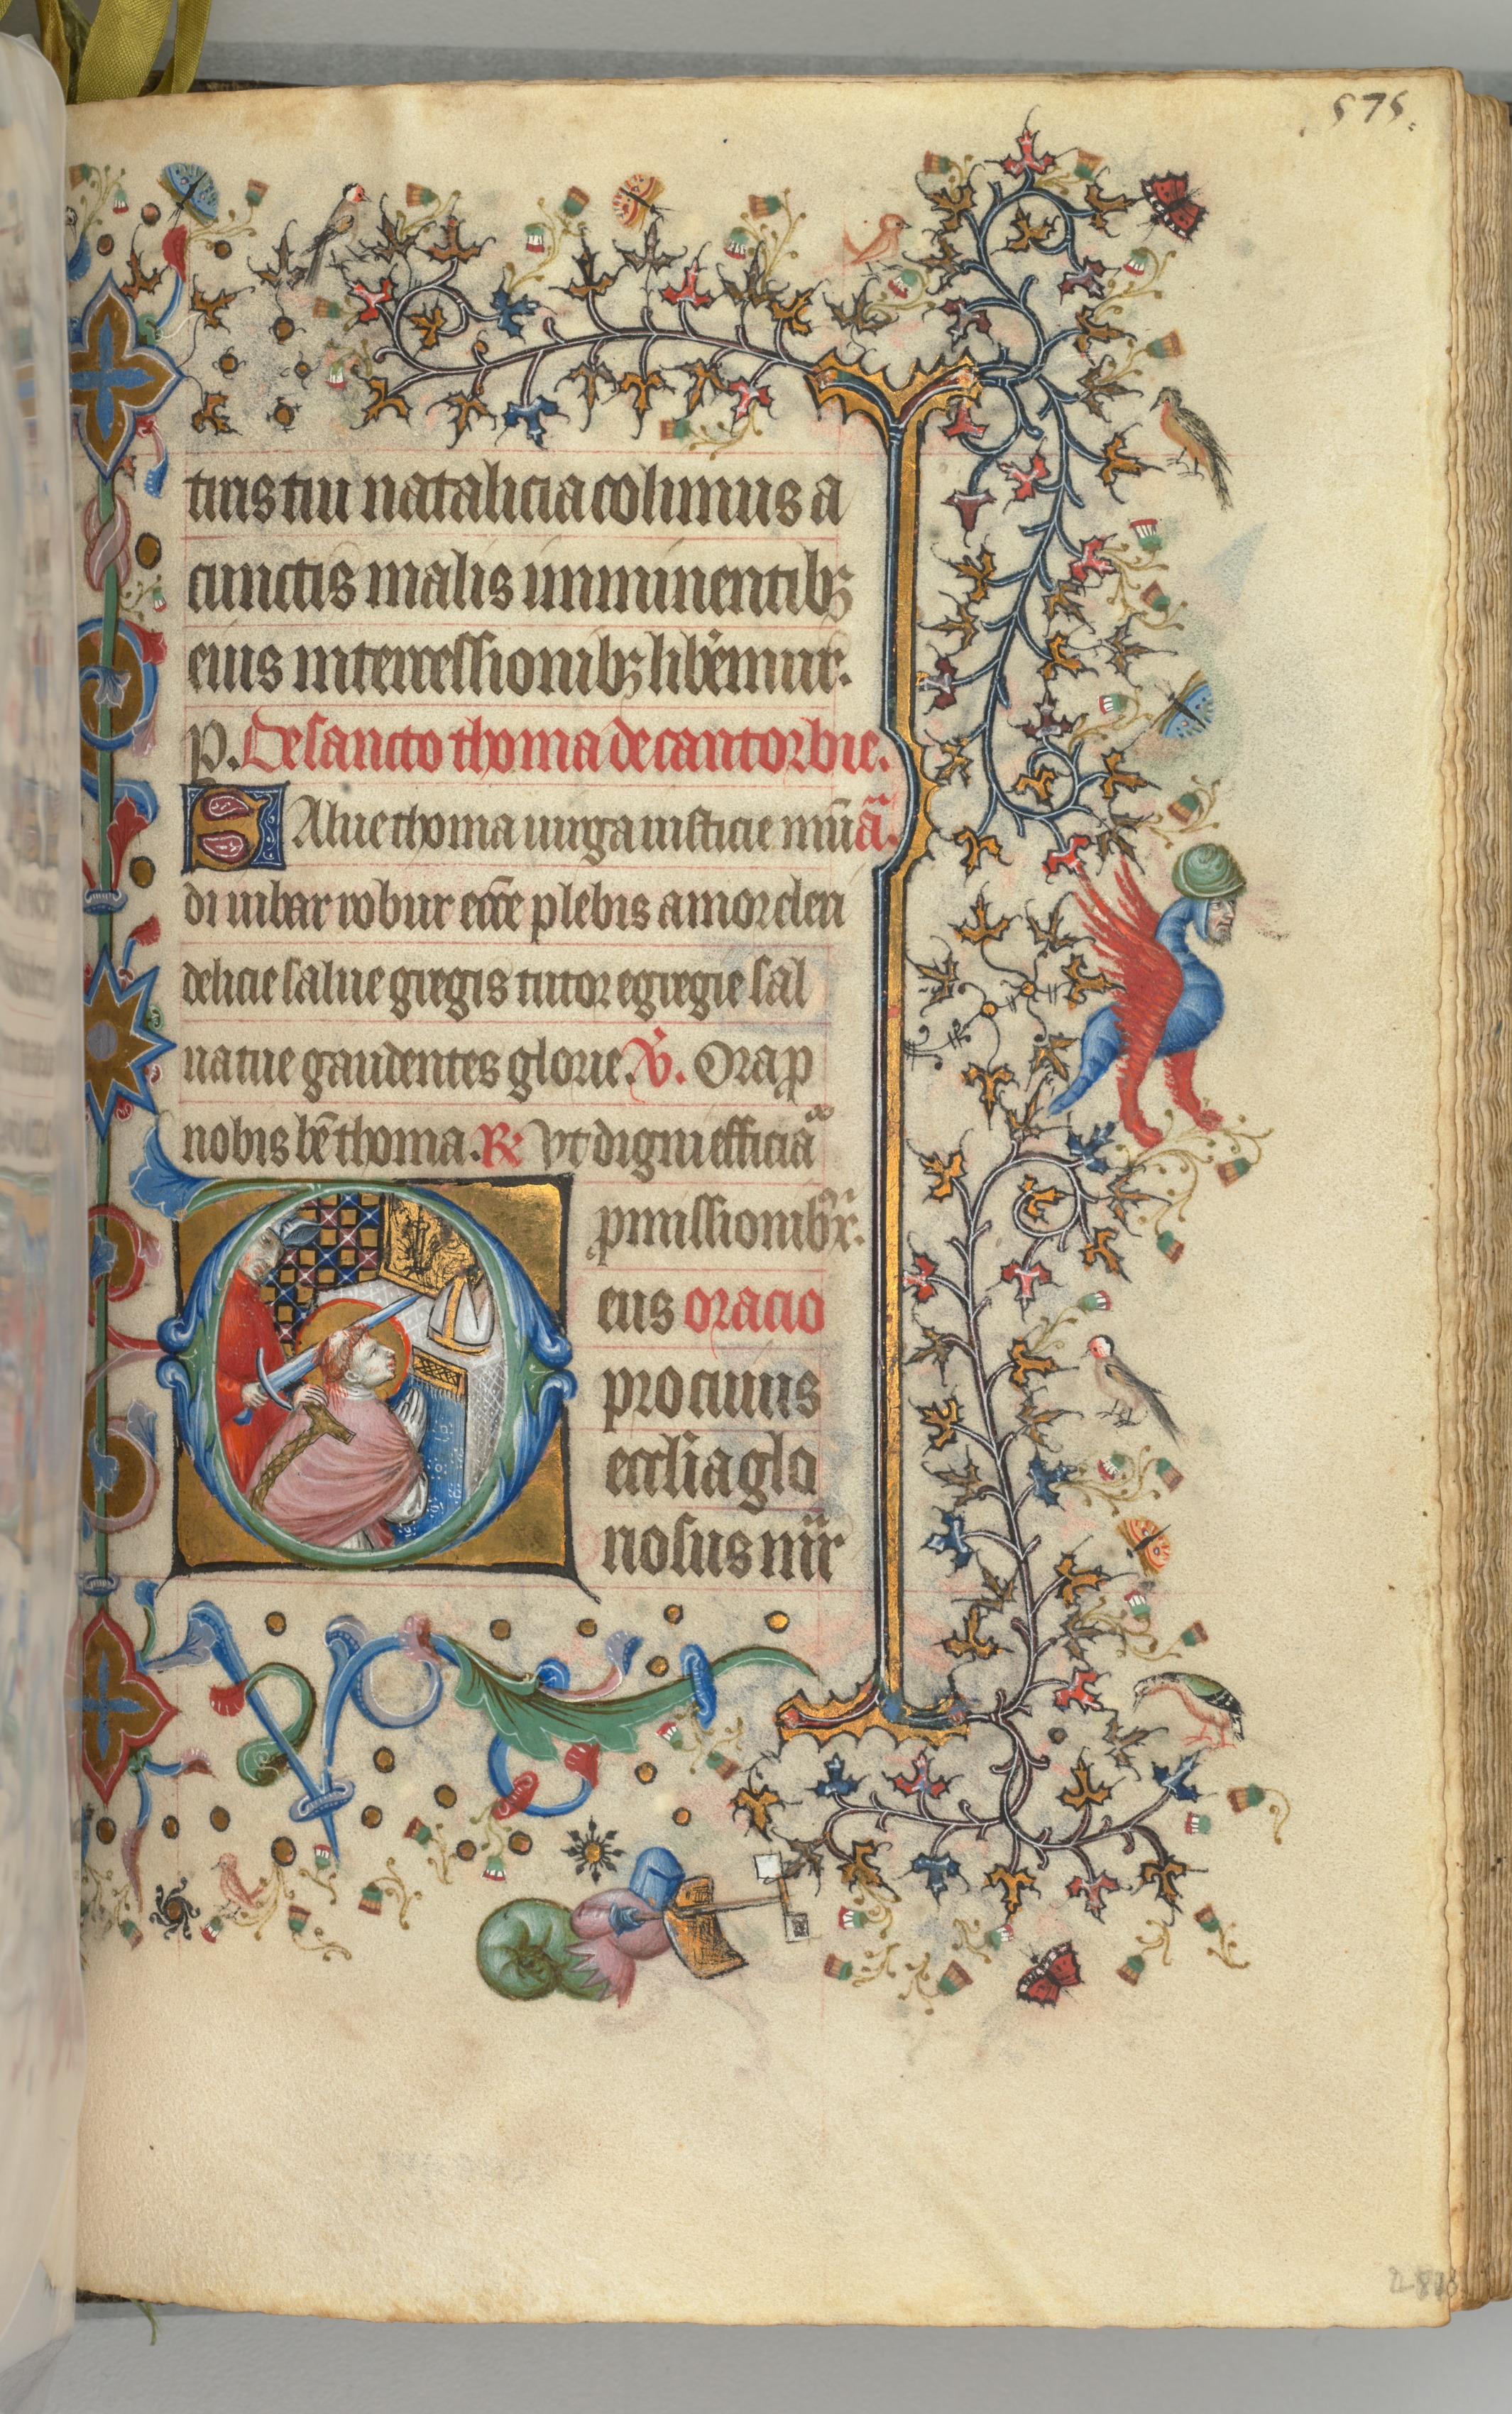 575.
tiris tui natalicia colimus a
cunctis malis imminentibꝫ
eius intercessionibꝫ libẽmur.
p. De sancto thoma de cantorbie.
SAlue thoma uirga iusticie mũ ã.
di iubar robur eccẽ plebis amor cleri
delicie salue gregis tutor egregie sal
ua tue gaudentes glorie. V̾. Ora ꝓ
nobis bẽ thoma. R̾ Vt digni efficiaᷓ
ꝓmissionibꝫ xᷓ.
eus oracio
pro cuius
ecclia glo
riosus mr̃